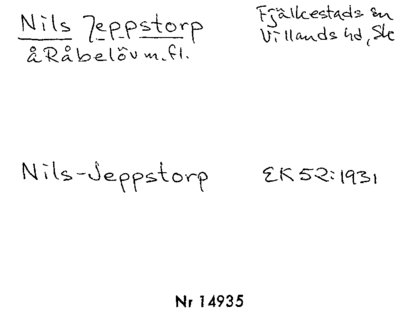 Nils Jeppstorp
å Råbelöv m.fl.
Fjälkestads sn
Villands hd, Sk
Nils-Jeppstorp
EK 52:1931
Nr 14935